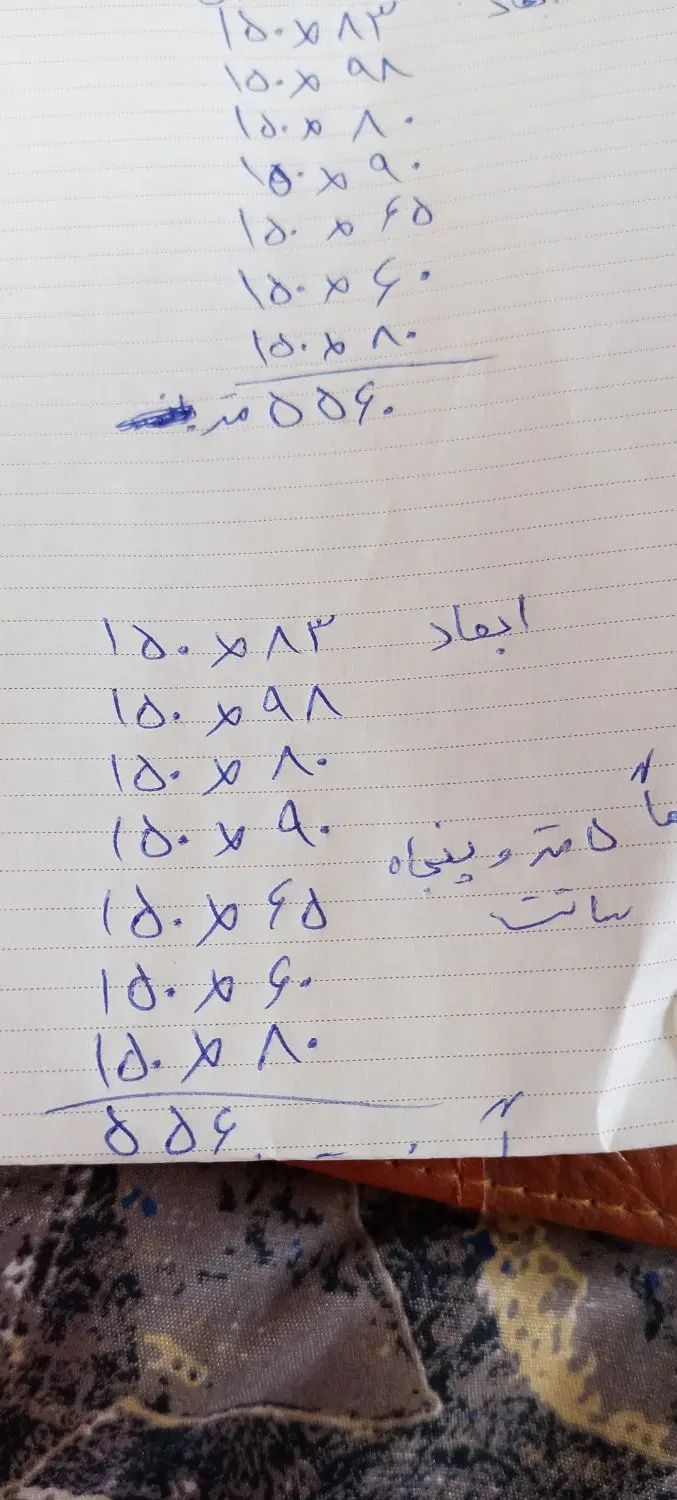 ۱۵۰×۸۳
۱۵۰×۹۸
۱۵۰×۸۰
۱۵۰×۹۰
۱۵۰×۶۵
۱۵۰×۶۰
۱۵۰×۸۰
۵۵۶۰ متر
۱۵۰×۸۳ ابعاد
۱۵۰×۹۸
۱۵۰×۸۰
۱۵۰×۹۰ ۵ متر و پنجاه
۱۵۰×۶۵ سانت
۱۵۰×۶۰
۱۵۰×۸۰
۵۵۶۰